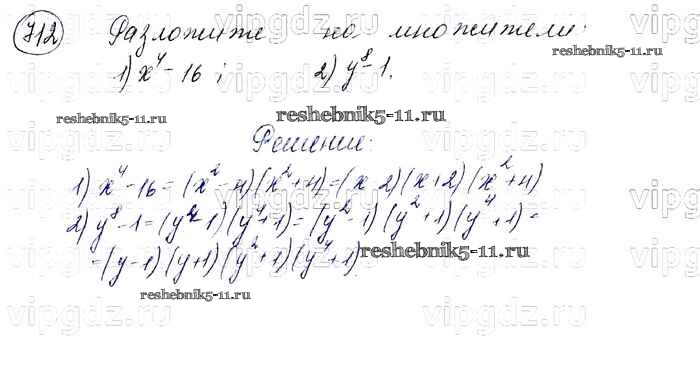 712 Разложите на множители:
1) x⁴-16; 2) y⁸-1.
reshebnik5-11.ru reshebnik5-11.ru
Решение:
1) x⁴-16=(x²-4)(x²+4)=(x-2)(x+2)(x²+4)
2) y⁸-1=(y⁴-1)(y⁴+1)=(y²-1)(y²+1)(y⁴+1)=
=(y-1)(y+1)(y²+1)(y⁴+1)
reshebnik5-11.ru reshebnik5-11.ru
vipgdz.ru vipgdz.ru vipgdz.ru
vipgdz.ru vipgdz.ru vipgdz.ru